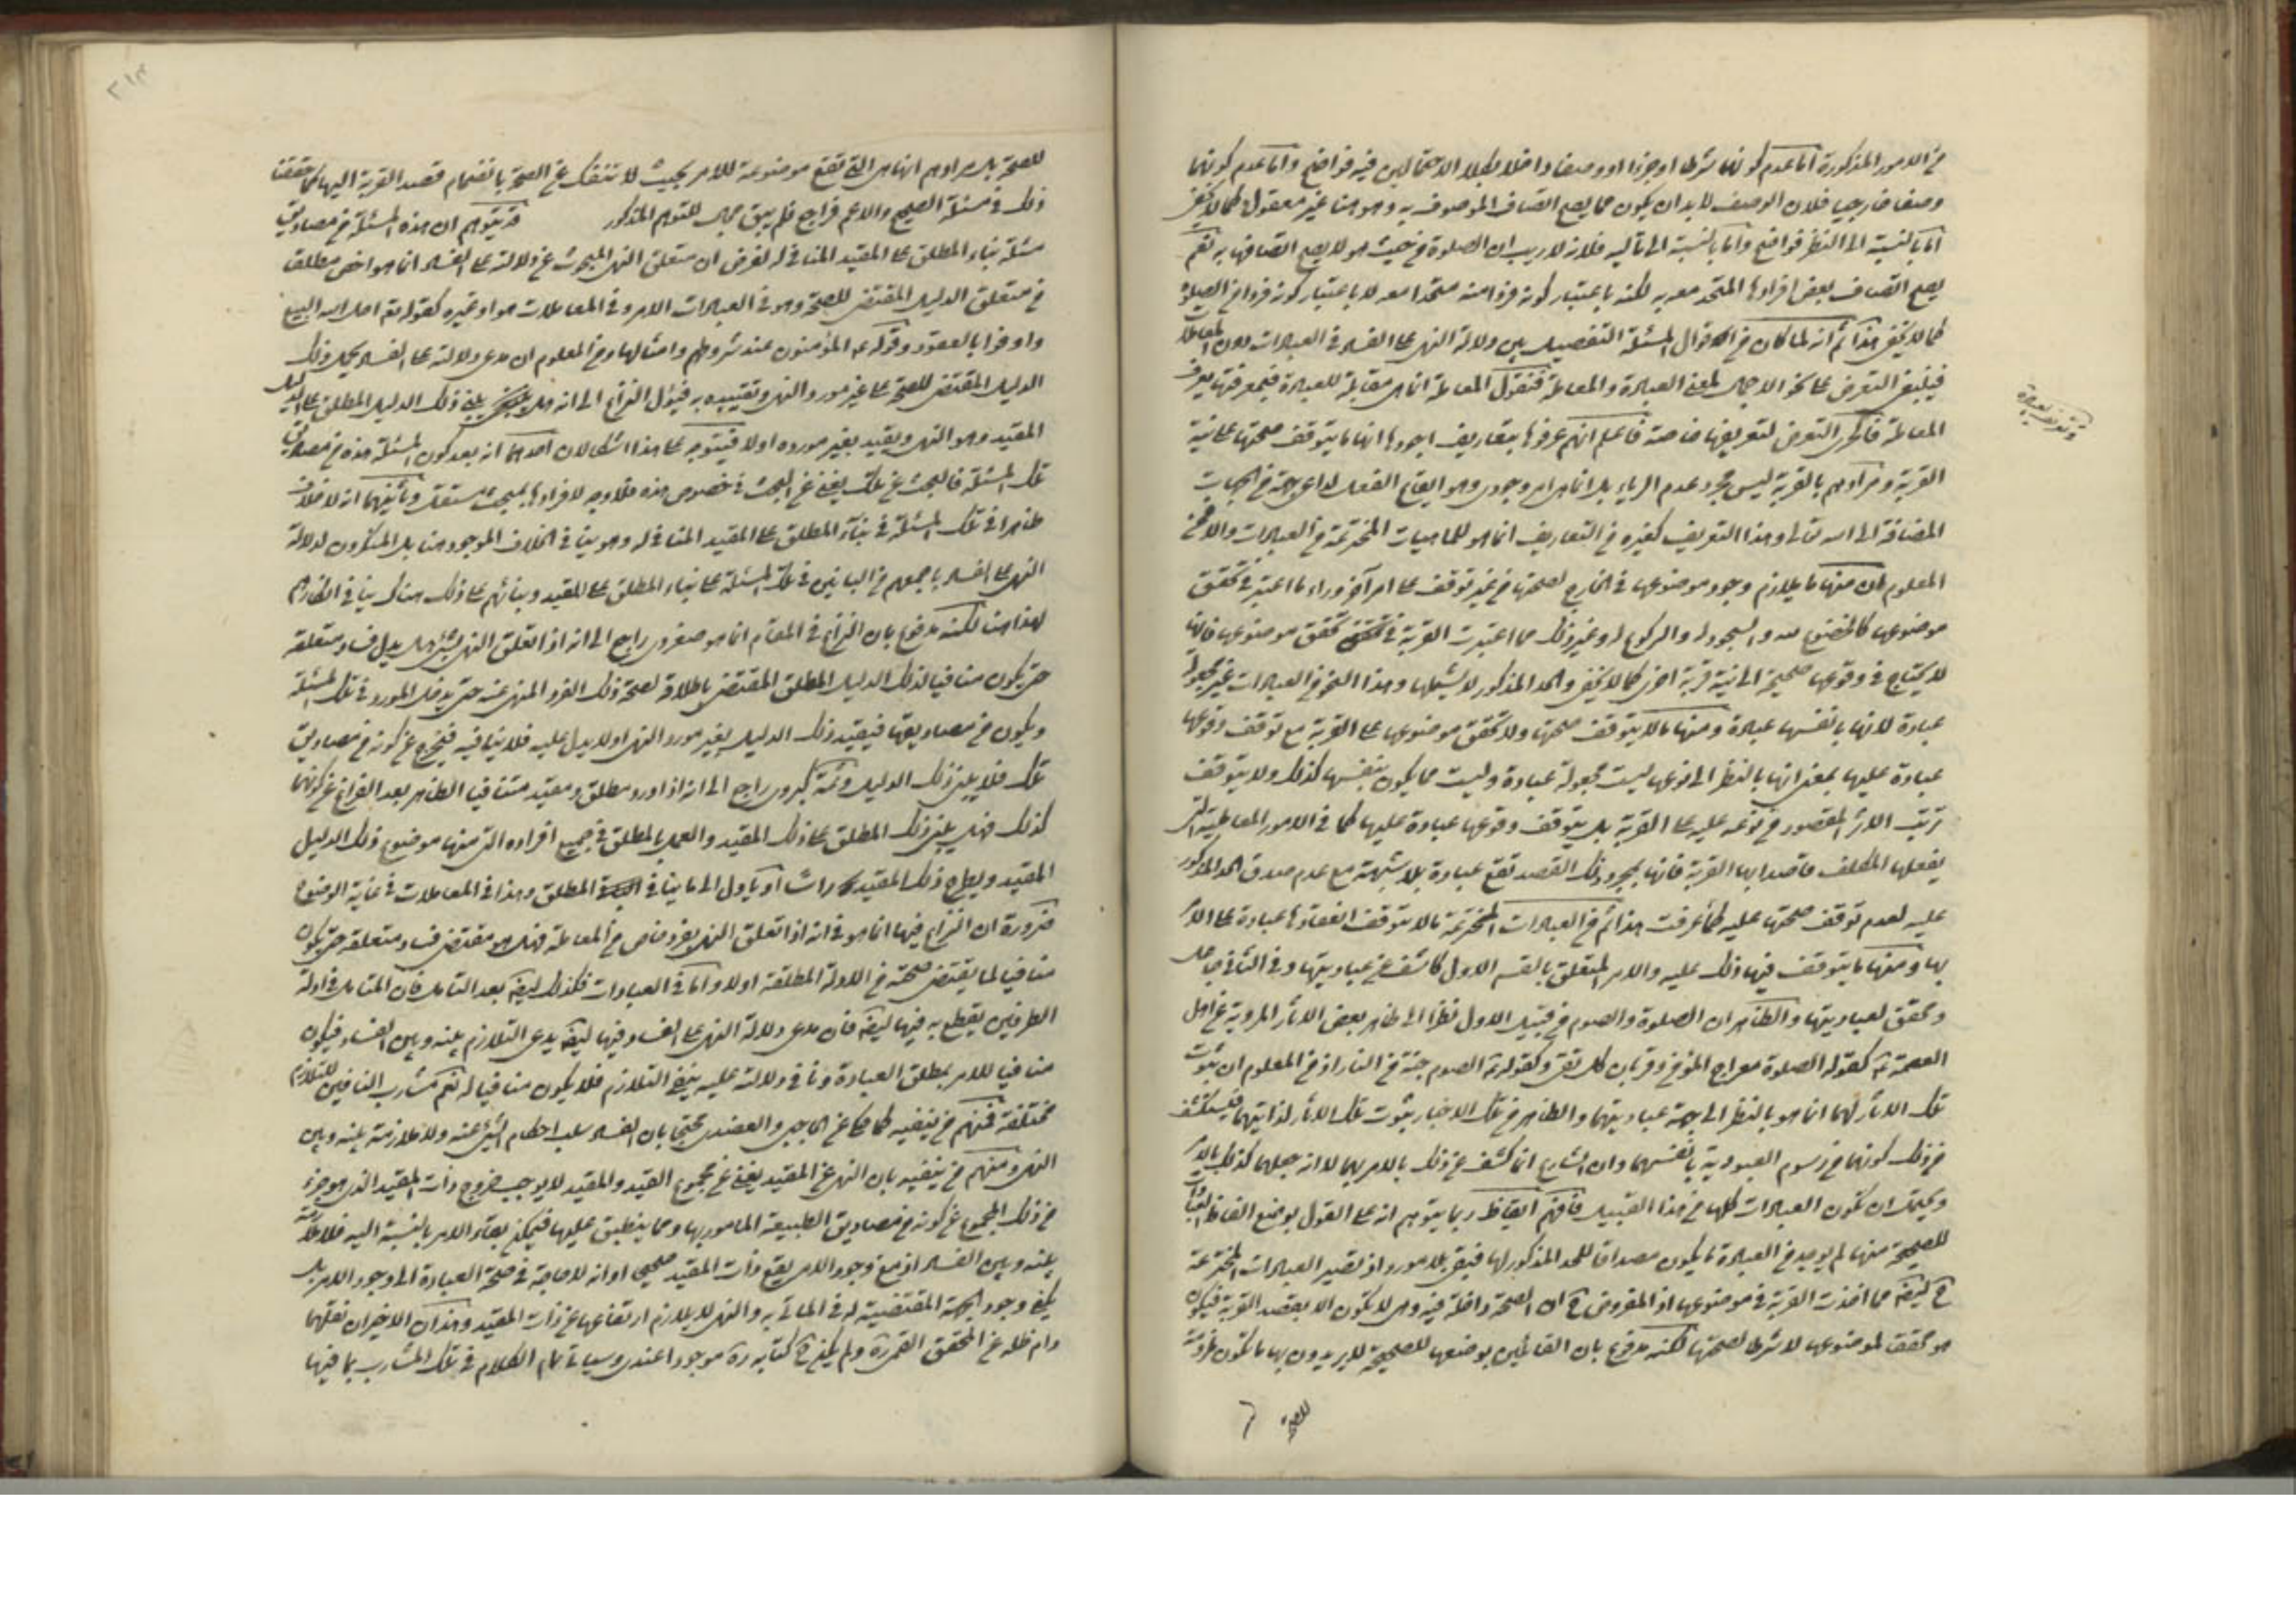 من الامور المذكورة اما عدم كونها شرطا او جزءا او وصفا داخلا بكلا الاحتمالين فيه فواضح واما عدم كونها
وصفا خارجيا فلان الوصف لا بد ان يكون مما يصح اتصاف الموصوف به وهو هنا غير معقول كما لا يخفى
اما بالنسبة الى النظر فواضح واما بالنسبة الى تاليه فلانه لا ريب ان الصلوة من حيث هو لا يصح اتصافها به نعم
يصح اتصاف بعض افرادها المتحد معه به لكنه باعتبار كونه فردا منه متحدا معه لا باعتبار كونه فردا من الصلوة
كما لا يخفى هذا ثم انه لما كان من اقوال المسئلة التفصيل بين دلالة النهى على الفساد في العبادات دون المعاملات
فينبغى التعرض على نحو الاجمال لمعنى العبادة والمعاملة فنقول المعاملة انما هى مقابلة للعبادة فبمعرفتها يعرف
وتعريف العبادة
المعاملة فالحرى التعرض لتعريفها خاصة فاعلم انهم عرفوها بتعاريف اجودها انها ما يتوقف صحتها على نية
القربة ومرادهم بالقربة ليس مجرد عدم الرياء بل انما هى امر وجودى وهو ايقاع الفعل لداعى جهة من الجهات
المضافة الى الله تعالى وهذا التعريف كغيره من التعاريف انما هو للماهيات المخترعة من العبادات والا فمن
المعلوم ان منها ما يلازم وجود موضوعها في الخارج لصحتها من غير توقف على امر آخر وراء ما اعتبر في تحقق
موضوعها كالخضوع لله والسجود له والركوع له وغير ذلك مما اعتبرت القربة في تحقق موضوعها فانها
لا يحتاج في وقوعها صحيحة الى نية قربة اخرى كما لا يخفى والحد المذكور لا يشملها وهذا النحو من العبادات غير مجعولة
عبادة لانها بانفسها عبادة ومنها ما لا يتوقف صحتها ولا تحقق موضوعها على القربة مع توقف وقوعها
عبادة عليها بمعنى انها بالنظر الى نوعها ليست مجعولة عبادة وليست مما يكون بنفسها كذلك ولا يتوقف
ترتب الاثر المقصور من نوعه عليه على القربة بل يتوقف وقوعها عبادة عليها كما في الامور المعاملية التى
يفعلها المكلف قاصدا بها القربة فانها بمجرد ذلك القصد تقع عبادة بلا شبهة مع عدم صدق الحد المذكور
عليه لعدم توقف صحتها عليه كما عرفت هذا ثم من العبادات المخترعة ما لا يتوقف انعقادها عبادة على الامر
بها ومنها ما يتوقف فيها ذلك عليه والامر المتعلق بالقسم الاول كاشف عن عباديتها وفي الثانى جاعل
ومحقق لعباديتها والظاهر ان الصلوة والصوم من قبيل الاول نظرا الى ظاهر بعض الاثار المروية عن اهل
العصمة كقوله الصلوة معراج المؤمن وقربان كل تقى وكقوله الصوم جنة من النار اذ من المعلوم ان ثبوت
تلك الاثار لهما انما هو بالنظر الى جهة عباديتهما والظاهر من تلك الاخبار ثبوت تلك الاثار لذاتيهما فيستكشف
من ذلك كونهما من رسوم العبودية بانفسهما وان الشارع انما كشف عن ذلك بالامر بهما لا انه جعلهما كذلك بالامر
ويحتمل ان تكون العبادات كلها من هذا القبيل فافهم ايقاظ ربما يتوهم انه على القول بوضع الفاظ العبادات
للصحيحة منها لم يوجد في العبادة ما يكون مصداقا للحد المذكور لها فيبقى بلا مورد اذ تصير العبادات المخترعة
ح ايضا مما اخذت القربة في موضوعها اذ المفروض ح ان الصحة داخلة فيه وهى لا تكون الا بقصد القربة فيكون
هو محقق لموضوعها لا شرطا لصحتها لكنه مدفوع بان القائلين بوضعها للصحيحة لا يريدون بها ما تكون ملزومة
للصحة
للصحة بل مرادهم انها هى التى تقع موضوعة للامر بحيث لا تنفك عن الصحة بانضمام قصد القربة اليها كما حققنا
ذلك في مسئلة الصحيح والاعم فراجع فلم يبق مجال للتوهم المذكور قد يتوهم ان هذه المسئلة من مصاديق
مسئلة بناء المطلق على المقيد المنافى له لفرض ان متعلق النهى المبحوث عن دلالته على الفساد انما هو اخص مطلقا
من متعلق الدليل المقتضى للصحة وهو في العبادات الامر وفي المعاملات هو او غيره كقوله تعالى احل الله البيع
واوفوا بالعقود وقوله المؤمنون عند شروطهم وامثالها ومن المعلوم ان مدعى دلالته على الفساد يحمل ذلك
الدليل المقتضى للصحة على غير مورد النهى وتقييده به فيؤل النزاع الى انه هل يبنى ذلك الدليل المطلق على الدليل
المقيد وهو النهى ويقيد بغير مورده او لا فيتوجه على هذا اشكالان احدهما انه بعد كون المسئلة هذه من مصاديق
تلك المسئلة فالبحث عن تلك يغنى عن البحث في خصوص هذه فلا وجه لافرادها بمبحث مستقل وثانيهما انه لا خلاف
ظاهرا في تلك المسئلة في بناء المطلق على المقيد المنافى له وهو ينافى الخلاف الموجود هنا بل المنكرون لدلالة
النهى على الفساد باجمعهم من البانين في تلك المسئلة على بناء المطلق على المقيد وبنائهم على ذلك هناك ينافى انكارهم
لهذا هنا لكنه مدفوع بان النزاع في المقام انما هو صغروى راجع الى انه اذا تعلق النهى بشئ هل يدل فساد متعلقه
حتى يكون منافيا لذلك الدليل المطلق المقتضى باطلاقه لصحة ذلك الفرد المنهى عنه حتى يدخل المورد في تلك المسئلة
ويكون من مصاديقها فيقيد ذلك الدليل بغير مورد النهى او لا يدل عليه فلا ينافيه فيخرج عن كونه من مصاديق
تلك فلا يبنى ذلك الدليل وثمة كبروى راجع الى انه اذا ورد مطلق ومقيد متنافيا الظاهر بعد الفراغ عن كونهما
كذلك فهل يبنى ذلك المطلق على ذلك المقيد والعمل بالمطلق في جميع افراده التى منها موضوع ذلك الدليل
المقيد ويطرح ذلك المقيد راسا او يأول الى ما ينافى المطلق وهذا في المعاملات في غاية الوضوح
ضرورة ان النزاع فيها انما هو في انه اذا تعلق النهى بفرد خاص من المعاملة فهل هو مقتضى فساد متعلقه حتى يكون
منافيا لما يقتضى صحته من الادلة المطلقة او لا واما في العبادات فكذلك ايضا بعد التامل فان المتامل في ادلة
الطرفين يقطع به فيها ايضا فان مدعى دلالة النهى على الفساد فيها ايضا يدعى التلازم بينه وبين الفساد فيكون
منافيا للامر بمطلق العبادة ونافى دلالته عليه ينفى التلازم فلا يكون منافيا له نعم مشارب النافين للتلازم
مختلفة فمنهم من ينفيه كما حكى عن الحاجبى والعضدى محتجا بان الفساد سلب احكام الشئ عنه ولا ملازمة بينه وبين
النهى ومنهم من ينفيه بان النهى عن المقيد يغنى عن مجموع القيد والمقيد لا يوجب خروج ذات المقيد الذى هو جزء
من ذلك المجموع عن كونه من مصاديق الطبيعة المامور بها ومما ينطبق عليها فيمكن بقاء الامر بالنسبة اليه فلا ملازمة
بينه وبين الفساد اذ مع وجود الامر يقع ذات المقيد صحيحا او انه لا حاجة في صحة العبادة الى وجود الامر بل
يكفى وجود الجهة المقتضية له في الماتى به والنهى لا يلازم ارتفاعها عن ذات المقيد وهذان الاخيران نقلهما
دام ظله عن المحقق القمى ره ولم يكن ح كتابه ره موجودا عندى وسياتى تمام الكلام في تلك المشارب بما فيها